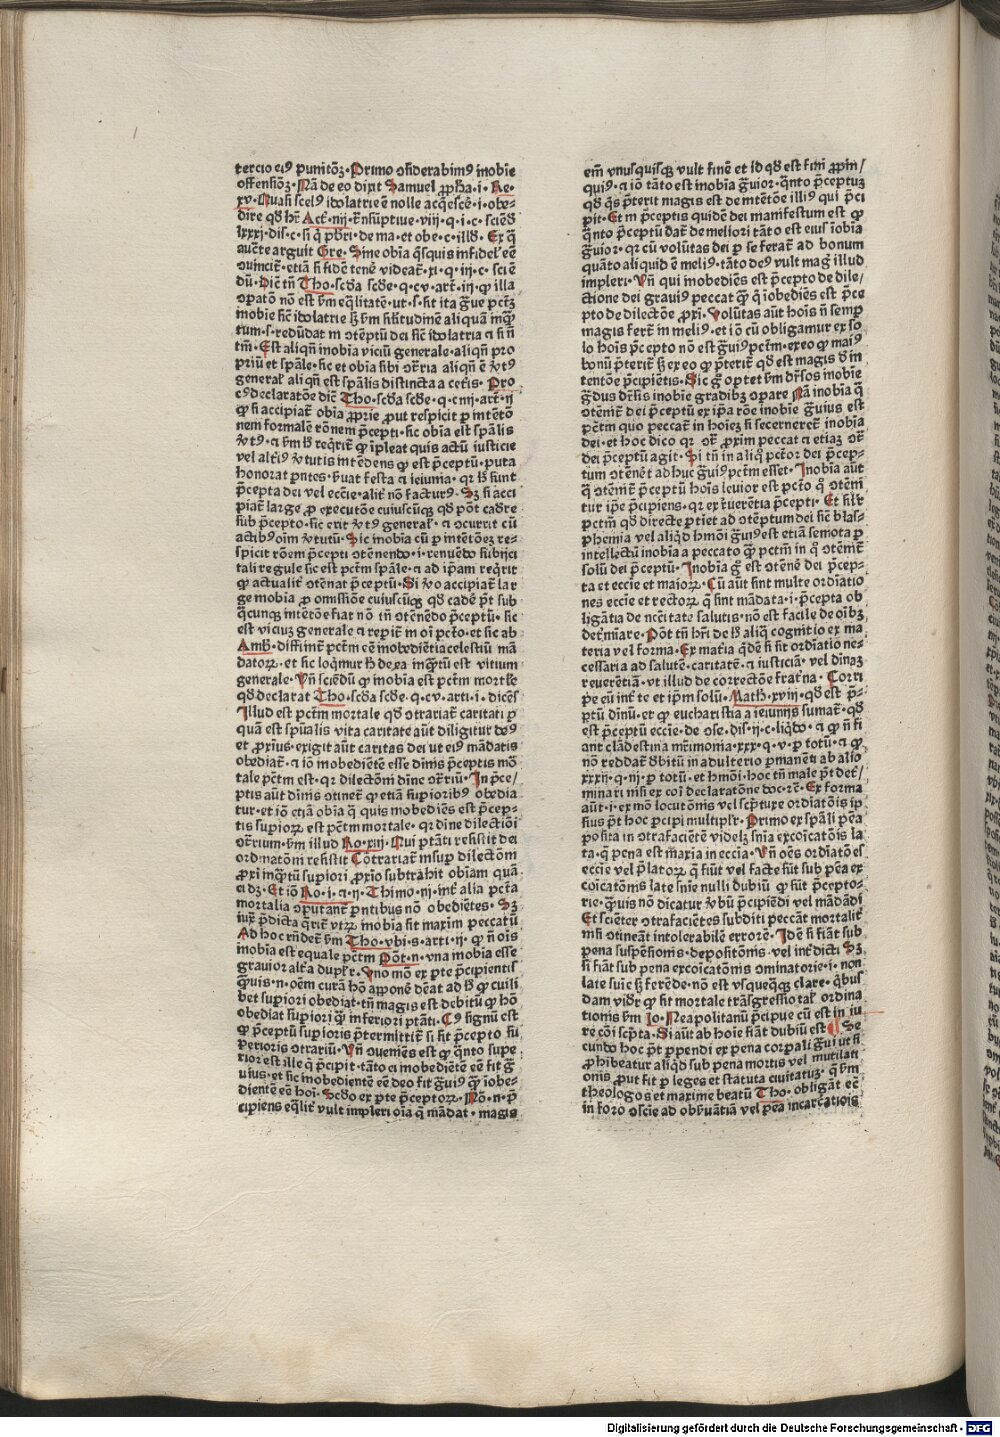 tercio eiꝰ punitõꝫ · Primo ↄsiderabimꝰ inobiẽ
offensiõꝫ · Nã de eo dixit Samuel ꝓpħa · i · Re-
xv · Quasi scelꝰ idolatrie ẽ nolle acq̃escẽ · i · obe-
dire qđ hr̃
lxxxj · dis · c · si q̃ pb̃ri · de ma · et obe · c · illđ · Ex q̃
auct̃e arguit Gre · Sine obĩa q̃squis infidelꝰ eẽ
ↄuincit̃ · etiã si fidẽ tenẽ videat̃ · xi · q · iij · c · sciẽ
dũ · Diẽ tñ Tho · scđa scđe · q · cv · art̃ · iij · ꝙ illa
ↄpatõ nõ est ẜm eq̃litatẽ · ut · s · sit ita g̃ue pctꝫ
tum · s · redũdat in ↄtẽptũ dei sic̃ idolatria ⁊ si ñ
tm̃ · Est aliqñ inobĩa viciũ generale · aliqñ pro
priũ et sp̃ale · sic et obĩa sibi ↄr̃ria aliqñ ẽ ꝟtꝰ
general̃ aliqñ est sp̃alis distincta a cet̃is · Pro
cꝰ declaratõe diẽ Tho · scđa scđe · q · ciiij · art̃ · ij
ꝙ si accipiat̃ obĩa ꝓprie prout respicit p intẽtõ
nem formalẽ rõnem p̃cepti · sic obĩa est sp̃alis
ꝟtꝰ · ⁊ ẜm ħ req̃rit̃ ꝙ ĩpleat quis actũ iusticie
vel altiꝰ ꝟtutis intẽdens ꝙ est p̃ceptũ · puta
honorat pñtes · ẜuat festa ⁊ ieiunia · qꝛ ħ sunt
p̃cepta dei vel ecc̃ie · alit̃ nõ facturꝰ · Sꝫ si acci
piat̃ large ꝓ executõe cuiuscũqꝫ qđ põt cad̃e
sub p̃cepto · sic erit ꝟtꝰ general̃ · ⁊ ↄcurrit cũ
actibꝰ oĩm ꝟtutũ · Sic inobĩa cũ p intẽtõeꝫ re-
spicit rõem p̃cepti ↄtẽnendo · i · renuẽdo subijci
tali regule sic est pctm̃ sp̃ale · ⁊ ad ip̃am req̃rit̃
ꝙ actualit̃ ↄtẽnat p̃ceptũ · Si ꝟo accipiat̃ lar
ge inobĩa ꝓ omissiõe cuiuscũqꝫ qđ cadẽ p̃t sub
q̃cunqꝫ intẽtõe fiat nõ tñ ↄtẽnẽdo p̃ceptũ · sic
est viciuꝫ generale ⁊ repit̃ in oĩ pcto · et sic ab
Amb̃ · diffinit̃ pctm̃ eẽ inobediẽtia celestiũ mã
datoꝝ · et sic loq̃mur ħ de ea inq̃tũ est vitium
generale · Uñ sciẽdũ ꝙ inobĩa est pctm̃ mortale
qđ declarat Tho · scđa scđe · q · cv · arti · i · dicẽs
Illud est pctm̃ mortale qđ ↄtrariat̃ caritati p
quã est sp̃ualis vita caritate aũt diligitur deꝰ
et ꝓximꝰ · exigit aũt caritas dei ut eiꝰ mãdatis
obediat̃ · ⁊ iõ inobediẽtẽ esse diuinis p̃ceptis mõ
tale pctm̃ est · qꝛ dilectõni diuine ↄtr̃riũ · In p̃ce/
ptis aũt diuinis ↄtinet̃ ꝙ etiã superioribꝰ obedia
tur · et iõ etiã obĩa q̃ quis inobediẽs est p̃cep-
tis superioꝝ est pctm̃ mortale · qꝛ diuine dilectiõi
ↄtr̃rium · ẜm illud Ro · xiij · Qui ptãti resistit dei
ordinatõni resistit · Cõtrariat̃ insuꝑ dilectõni
ꝓxĩ inq̃tũ superiori ꝓxiõ subtrahit obĩam quã
ei dꝫ · Et iõ Ro · i · ⁊ ij · Thimo · iij · int̃ alia pctã
mortalia ↄputant̃ pñtibus nõ obediẽtes · Sꝫ
iux̃ p̃dicta q̃rit̃ vtꝝ inobĩa sit maxim̃ peccatũ
Ad hoc rñdet̃ ẜm Tho · vbi · s · arti · ij · ꝙ ñ oĩs
inobĩa est equale pctm̃ · Põt · n · vna inobĩa esse
grauior alt̃a duplr̃ · Uno mõ ex pte p̃cipientis
q̃uis · n · oẽm curã hõ apponẽ debeat ad ħ ꝙ cuili
bet superiori obediat · tñ magis est debitũ ꝙ hõ
obediat superiori q̃ inferiori ptãti · Cꝰ signũ est
ꝙ p̃ceptũ superioris p̃termittit̃ si sit p̃cepto su
perioris ↄtrariũ · Uñ ↄueniẽs est ꝙ q̃nto supe
rior est ille q̃ p̃cipit · tãto ei inobediẽtẽ eẽ sit g̃
uiꝰ · et sic inobedientẽ eẽ deo sit g̃uiꝰ q̃ iobe-
dientẽ eẽ hoĩ · Scđo ex pte p̃ceptoꝝ · Nõ · n · p̃
cipiens eq̃lit̃ vult impleri oĩa q̃ mãdat · magis
em̃ vnusquisqꝫ vult finẽ et id qđ est fini ꝓpin/
quiꝰ · ⁊ iõ tãto est inobĩa g̃uior · q̃nto p̃ceptuꝫ
qđ q̃s p̃terit magis est de intẽtõe illiꝰ qui p̃ci
pit · Et in p̃ceptis quidẽ dei manifestum est ꝙ
q̃nto p̃ceptũ dat̃ de meliori tãto est eiꝰ iobĩa
g̃uior · qꝛ cũ volũtas dei p se ferat̃ ad bonum
quãto aliquid ẽ meliꝰ · tãto deꝰ vult mag̃ illud
impleri · Uñ qui inobediẽs est p̃cepto de dile/
ctione dei grauiꝰ peccat q̃ q̃ iobediẽs est p̃ce
pto de dilectõe ꝓxĩ · Uolũtas aũt hoĩs ñ semp
magis fert̃ in meliꝰ · et iõ cũ obligamur ex so
lo hoĩs p̃cepto nõ est g̃uiꝰ pctm̃ · ex eo ꝙ maiꝰ
bonũ p̃terit̃ ꝫ ex eo ꝙ p̃terit̃ qđ est magis đ in
tentõe p̃cipiẽtis · Sic g̃ optet ẜm diũsos inobiẽ
g̃dus diũsis inobiẽ gradibꝫ ↄpare · Nã inobĩa q̃
ↄtẽnit̃ dei p̃ceptũ ex ip̃a rõe inobiẽ g̃uiꝰ est
pctm̃ quo peccat̃ in hoĩeꝫ si secerneret̃ inobĩa
dei · et hoc dico qꝛ q̃ ↄt̃ ꝓxim̃ peccat ⁊ etiaꝫ ↄt̃
dei p̃ceptũ agit · Si tñ in aliq̃ pctor dei p̃cep-
tum ↄtẽnẽt adhuc g̃uiꝰ pctm̃ esset · Inobĩa aũt
q̃ ↄtẽnit̃ p̃ceptũ hoĩs leuior est pcto q̃ ↄtẽni
tur ip̃e p̃cipiens · qꝛ ex r̃uerẽtia p̃cipientis
pctm̃ qđ directe ptiet ad ↄtẽptum dei sic̃ blas-
phemia vel aliqđ hmõi g̃uiꝰ est etiã semota p
intellectũ inobĩa a peccato q̃ pctm̃ in q̃ ↄtẽnit̃
solũ dei p̃ceptũ · Inobĩa g̃ est ↄtẽnẽ dei p̃cep-
ta et ecc̃ie et maioꝝ · Cũ aũt sint multe ordiatio
nes ecc̃ie et rectoꝝ q̃ sint mãdata · i · p̃cepta ob
ligãtia de nccitate salutis · nõ est facile de oĩbꝫ
det̃mĩare · Põt tñ hr̃i de ħ aliq̃ cognitio ex ma
teria vel forma · Ex mat̃ia q̃dẽ si sit ordiatio ne-
cessaria ad salutẽ · caritatẽ · ⁊ iusticiã · vel diuinaꝫ
reuerẽtiã · vt illud de correctõe frat̃na · Corri
pe eũ int̃ te et ip̃m solũ · Math̃ · xviij · qđ est p̃-
ptũ diuinũ · et ꝙ eucharistia a ieiunijs sumat̃ · qđ
est p̃ceptũ ecc̃ie · de ↄse · dis · ij · c · liq̃do · ⁊ ꝙ ñ fi
ant clãdestina mr̃imonia · xxx · q · v · p totũ · ⁊ ꝙ
nõ reddat̃ debitũ in adulterio pmanẽti ab alio
xxxij · q · iij · p totũ · et hmõi · hoc tñ male p̃t det̃/
minari nisi ex cõi declaratõne doc · rẽ · Ex forma
aũt · i · ex mõ locutõnis vel scp̃ture ordiatõis ip
sius p̃t hoc pcipi multiplr̃ · Primo ex sp̃ali pẽa
posita in ↄtrafaciẽtẽ · videlꝫ snĩa excoĩcatõis la
ta · q̃ pena est maxĩa in ecc̃ia · Uñ oẽs ordiatões
ecc̃ie vel p̃latoꝝ q̃ fiũt vel facte sunt sub pẽa ex
coĩcatõnis late snĩe nulli dubiũ ꝙ sũt p̃cepto-
rie · q̃uis nõ dicatur ꝟbũ p̃cipiẽdi vel mãdãdi
Et sciẽter ↄtrafaciẽtes subditi peccãt mortalit̃
nisi ↄtineant intolerabilẽ errorẽ · Idẽ si fiãt sub
pena suspẽsionis · depositõnis · vel int̃dicti · Sꝫ
si fiãt sub pena excoĩcatõnis ↄminatorie · i · non
late snĩe ꝫ ferẽde · nõ est vsqueq̃qꝫ clare · q̃bus
dam vidr̃ ꝙ sit mortale trãsgressio tal̃ ordina
tionis ẜm Io · Neapolitanũ p̃cipue cũ est in iu
re cõi scp̃ta · Si aũt ab hoĩe fiãt dubiũ est · Se
cundo hoc p̃t ppendi ex pena corpali g̃ui ut si
ꝓhibeatur aliqđ sub pena mortis vel mutilati
onis prout fit p leges et statuta ciuitatuꝫ · q̃ ẜm
theologos et maxime beatũ Tho · obligãt eẽ
in foro ↄscie ad obẜuãtiã vel pẽa incarcatiois
Digitalisierung gefördert durch die Deutsche Forschungsgemeinschaft - DFG